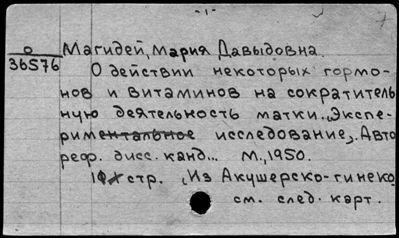 -1-
7
0
36576
Магидей, Мария Давыдовна.
О действии некоторых гормо-
нов и витаминов на сократитель
ную деятельность матки. Экспе-
риментальное исследование. Авто
реф. дисс. канд... М., 1950.
стр. (Из Акушерско-гинеко
см. след. карт.